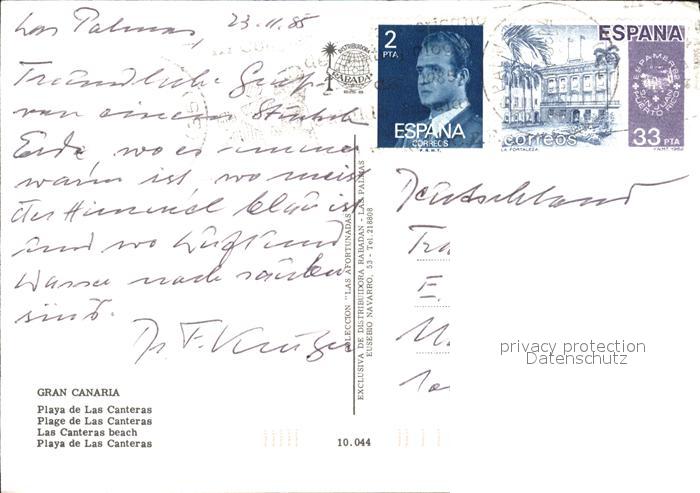 Las Palmas, 23.11.85
Freundliche Grüße
von einem Stück
Erde, wo es immer
warm ist, wo meist
der Himmel blau ist
und wo Luft und
Wasser noch sauber
sind.
Dr. F. Krüger
GRAN CANARIA
Playa de Las Canteras
Plage de Las Canteras
Las Canteras beach
Playa de Las Canteras
DISTRIBUIDORA
RABADAN
COLECCION "LAS AFORTUNADAS"
EXCLUSIVA DE DISTRIBUIDORA RABADAN - LAS PALMAS
EUSEBIO NAVARRO, 53 - Tel. 218808
10.044
2
PTA
ESPAÑA
CORREOS
F.N.M.T.
ESPAÑA
ESPAMER 82
SAN JUAN
PUERTO RICO
correos
33 PTA
LA FORTALEZA
F.N.M.T. 1982
Deutschland
E.
privacy protection
Datenschutz